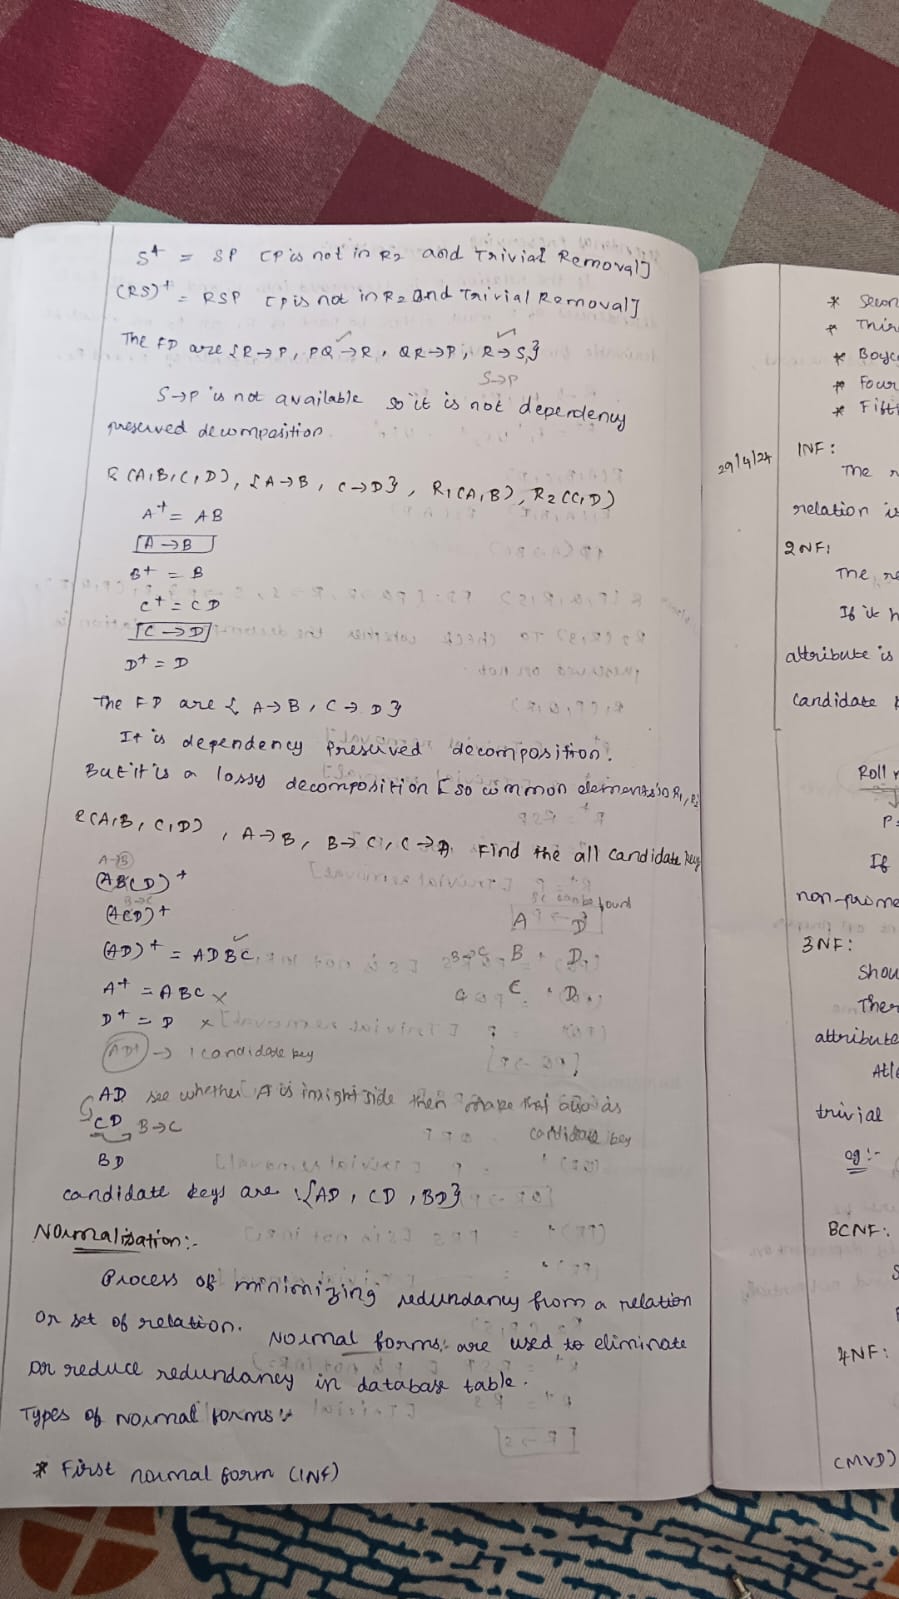 S+ = SP [P is not in R2 and Trivial Removal]
(RS)+ = RSP [P is not in R2 and Trivial Removal]
The FD are {R→P, PQ→R, QR→P, R→S}
S→P
S→P is not available so it is not dependency
preserved decomposition
R(A,B,C,D), {A→B, C→D}, R1(A,B), R2(C,D)
A+ = AB
A→B
B+ = B
C+ = CD
C→D
D+ = D
The FD are { A→B, C→D}
It is dependency preserved decomposition.
But it is a lossy decomposition [so common elements in R1, R2
R(A,B,C,D), A→B, B→C, C→A. Find the all candidate key
A→B
(ABCD)+
B→C
(ACD)+
(AD)+ = ADBC ✓
A+ = ABC ×
D+ = D ×
(AD)+ → 1 candidate key
can be found
A D
B→C B D
C D
AD see whether A is in right side then make that also as
candidate key
CD B→C
BD
candidate keys are {AD, CD, BD}
Normalization:-
Process of minimizing redundancy from a relation
or set of relation. Normal forms are used to eliminate
or reduce redundancy in database table.
Types of normal forms:-
* First normal form (1NF)
* Secon
* Thir
* Boyc
* Four
* Fift
29/4/24
1NF:
The
relation is
2NF:
The re
If it h
attribute is
candidate
Roll
P
If
non-prime
3NF:
Shou
Ther
attribute
Atle
trivial
eg:-
BCNF:
S
4NF:
(MVD)